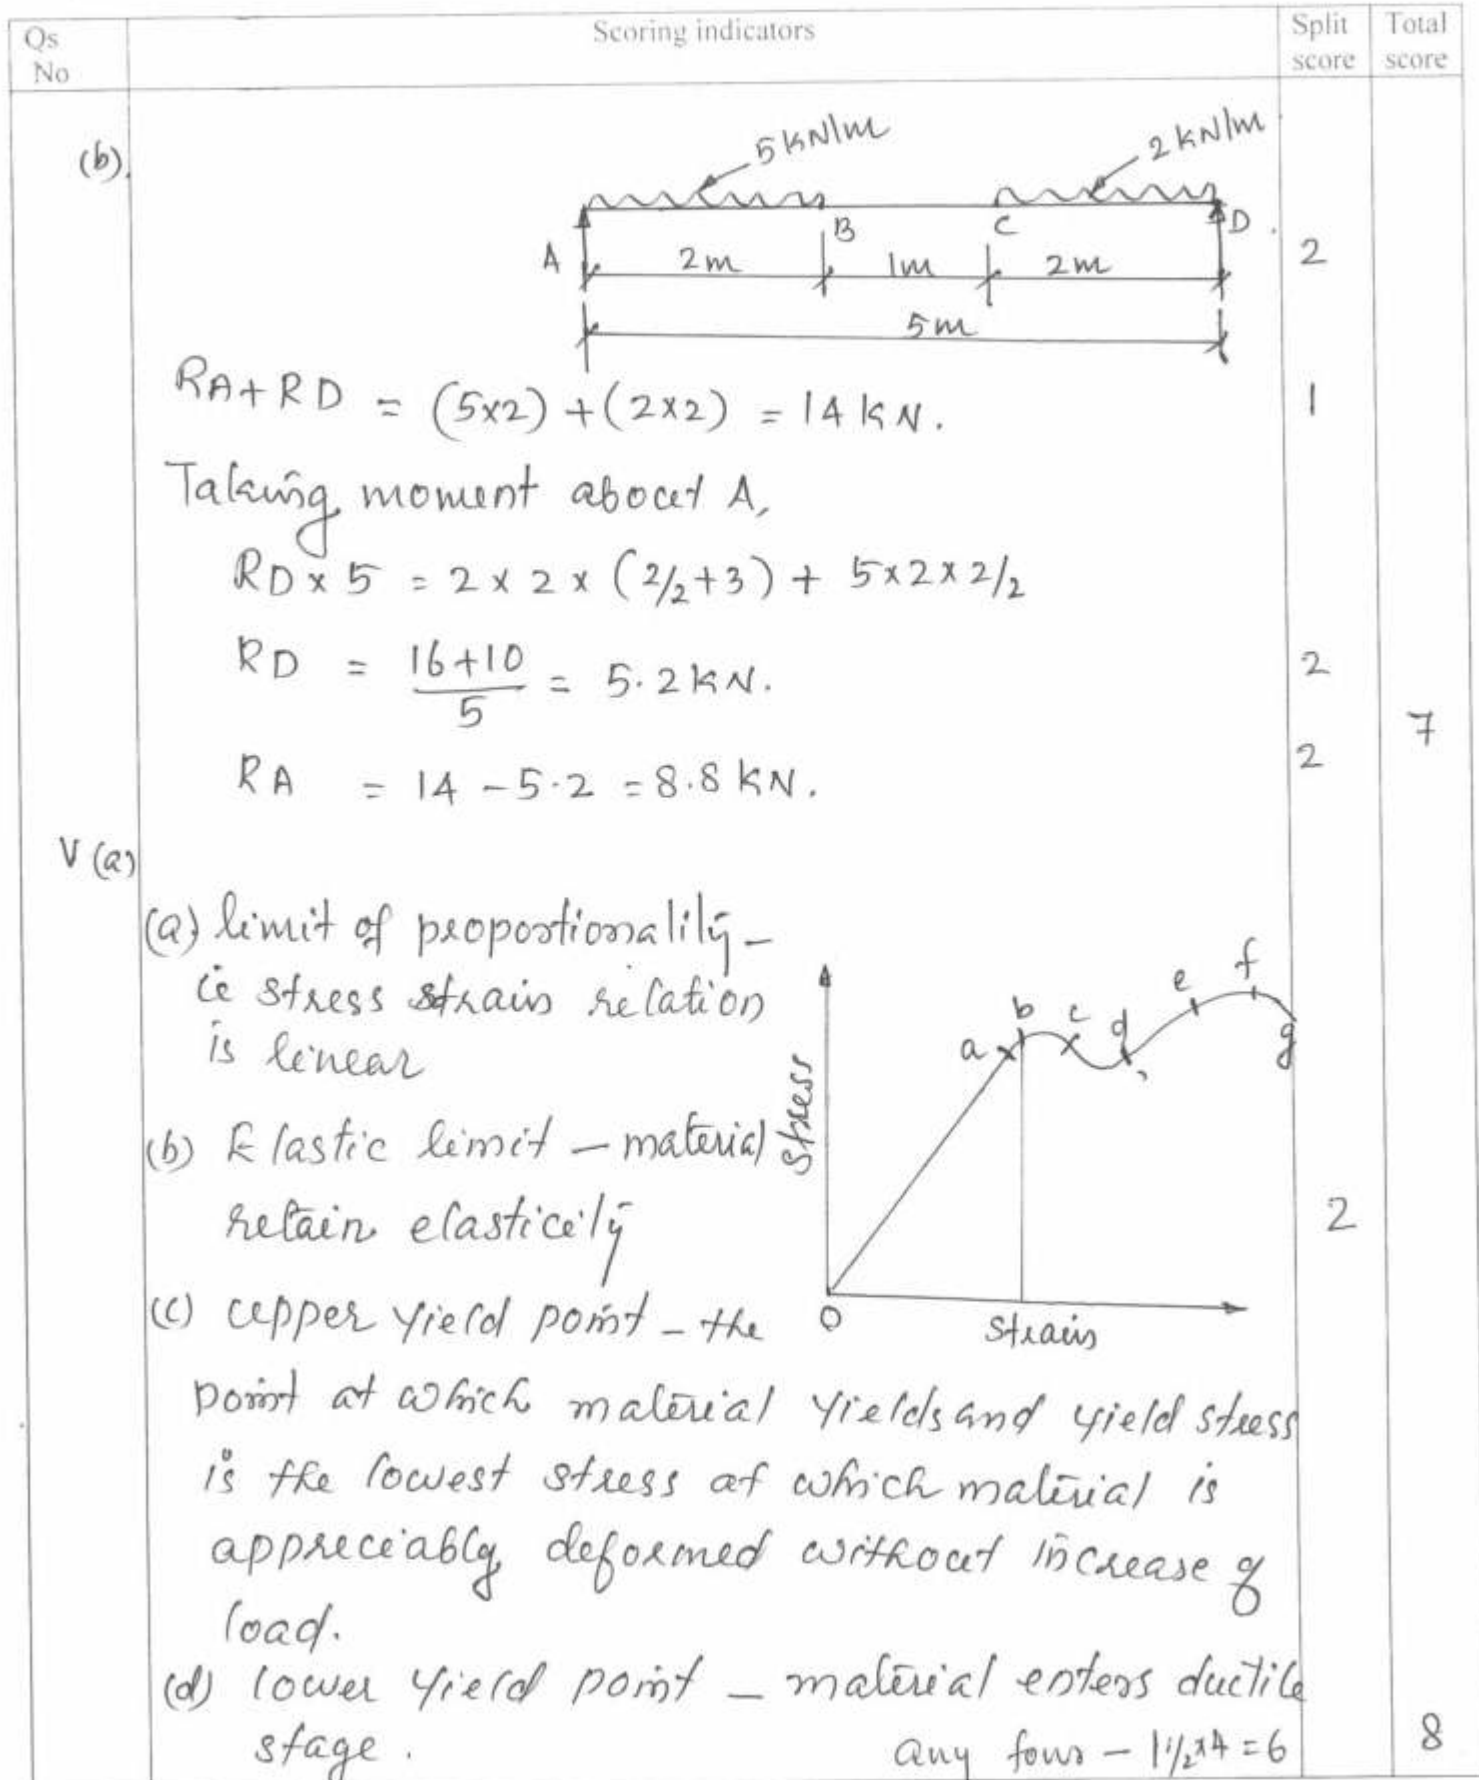 Qs No
Scoring indicators
Split score
Total score
(b)
5 kN/m
2 kN/m
A
B
C
D
2m
1m
2m
2
5m
RA+RD = (5x2) + (2x2) = 14 kN.
1
Taking moment about A,
RD x 5 = 2 x 2 x (2/2+3) + 5x2x2/2
RD = 16+10/5 = 5.2 kN.
2
7
RA = 14 - 5.2 = 8.8 kN.
2
V (a)
(a) limit of proportionality –
ie stress strain relation
is linear
(b) Elastic limit – material
retain elasticity
2
a
b
c
d
e
f
g
stress
O
strain
(c) upper yield point – the
point at which material yields and yield stress
is the lowest stress at which material is
appreciably deformed without increase of
load.
(d) lower yield point – material enters ductile
stage.
any four – 1 1/2 x 4 = 6
8